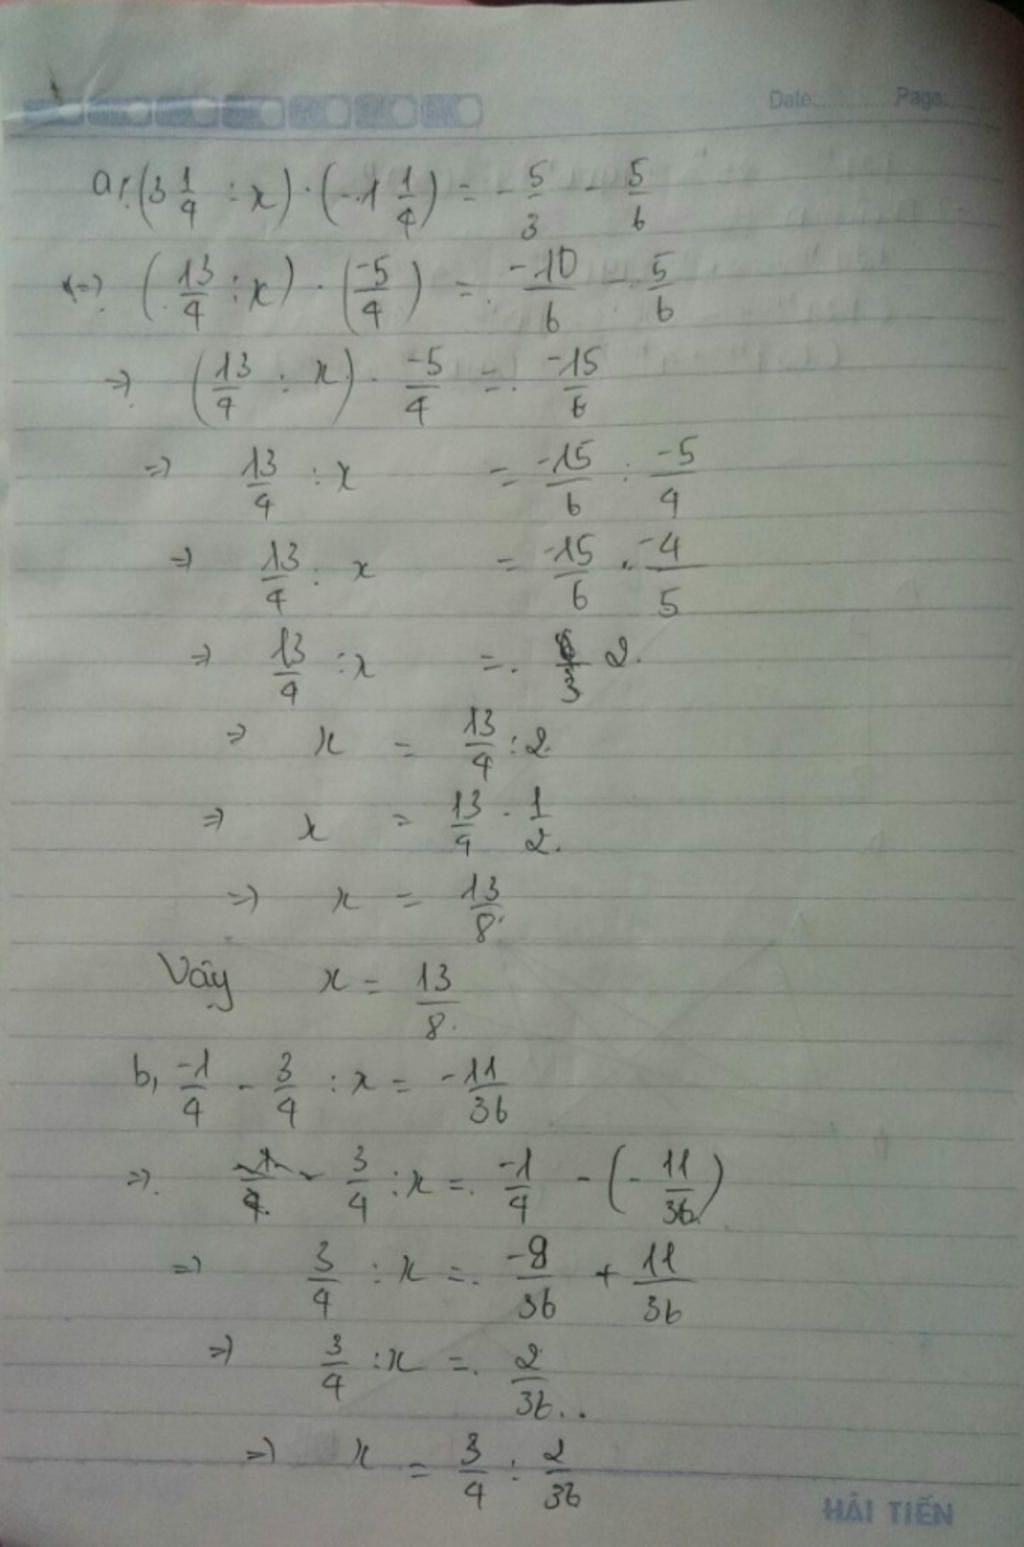 Date: Page:
a, (3 1/4 : x) . (-1 1/4) = - 5/3 - 5/6
<=> (13/4 : x) . (-5/4) = -10/6 - 5/6
=> (13/4 : x) . -5/4 = -15/6
=> 13/4 : x = -15/6 : -5/4
=> 13/4 : x = -15/6 . -4/5
=> 13/4 : x = 2.
=> x = 13/4 : 2.
=> x = 13/4 . 1/2.
=> x = 13/8.
Vây x = 13/8.
b, -1/4 - 3/4 : x = -11/36
=> 3/4 : x = -1/4 - (- 11/36)
=> 3/4 : x = -9/36 + 11/36
=> 3/4 : x = 2/36..
=> x = 3/4 : 2/36
HẢI TIẾN